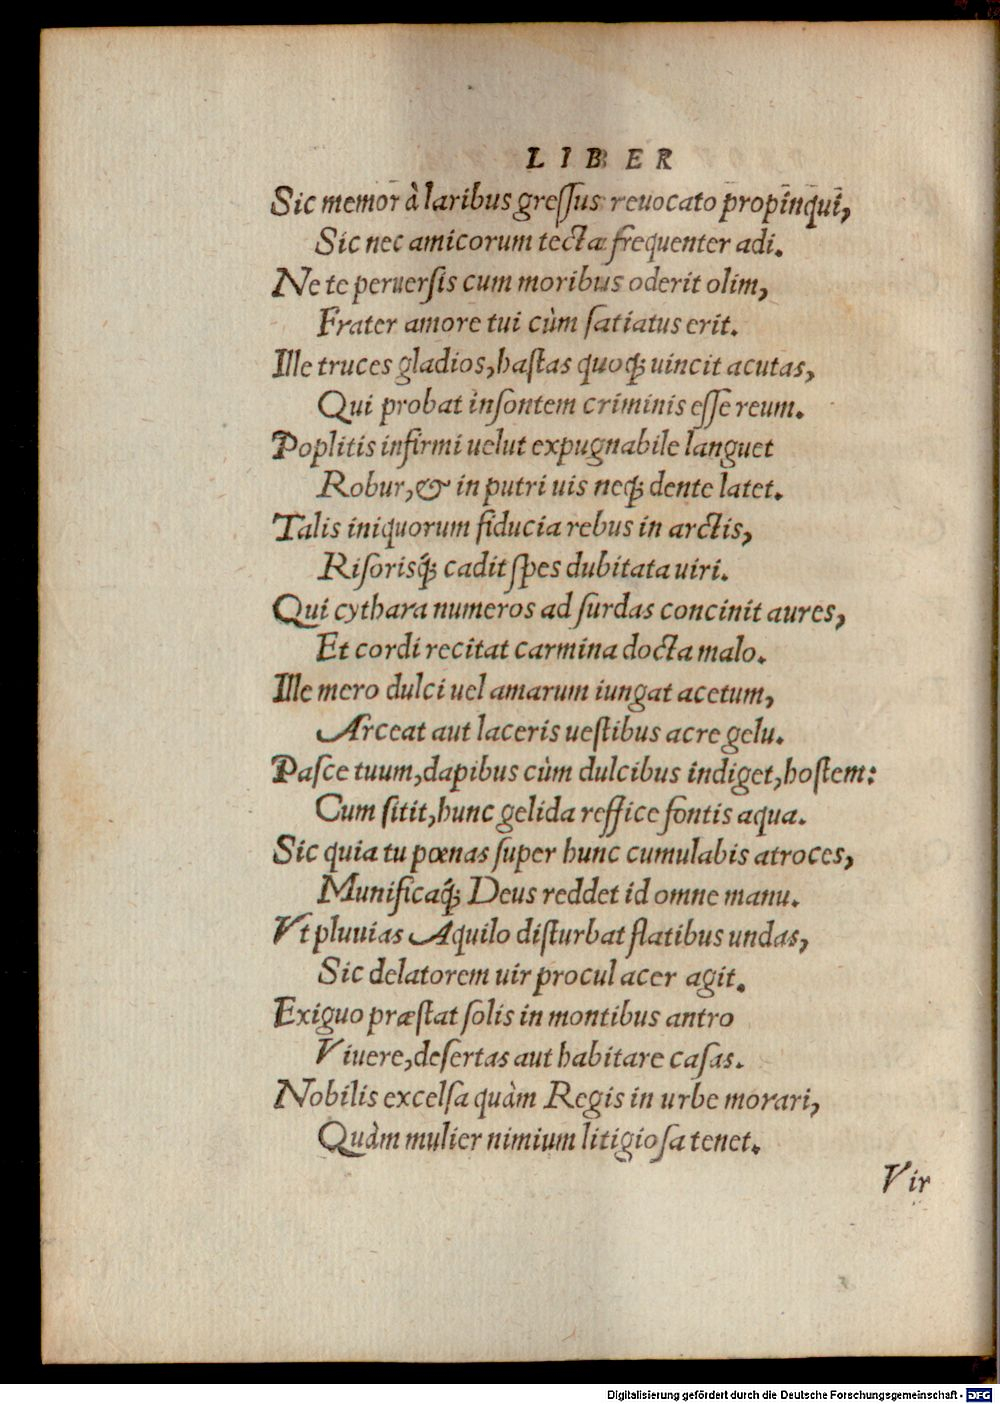 LIBER
Sic memor à laribus greſſus reuocato propinqui,
Sic nec amicorum tecta frequenter adi.
Ne te peruerſis cum moribus oderit olim,
Frater amore tui cùm ſatiatus erit.
Ille truces gladios, haſtas quoq; uincit acutas,
Qui probat inſontem criminis eſſe reum.
Poplitis infirmi uelut expugnabile languet
Robur, & in putri uis neq; dente latet.
Talis iniquorum fiducia rebus in arctis,
Riſorisq́; cadit ſpes dubitata uiri.
Qui cythara numeros ad ſurdas concinit aures,
Et cordi recitat carmina docta malo.
Ille mero dulci uel amarum iungat acetum,
Arceat aut laceris ueſtibus acre gelu.
Paſce tuum, dapibus cùm dulcibus indiget, hoſtem:
Cum ſitit, hunc gelida reffice fontis aqua.
Sic quia tu pœnas ſuper hunc cumulabis atroces,
Munificaq́; Deus reddet id omne manu.
Vt pluuias Aquilo diſturbat flatibus undas,
Sic delatorem uir procul acer agit.
Exiguo præſtat ſolis in montibus antro
Viuere, deſertas aut habitare caſas.
Nobilis excelſa quàm Regis in urbe morari,
Quàm mulier nimium litigioſa tenet.
Vir
Digitalisierung gefördert durch die Deutsche Forschungsgemeinschaft - DFG